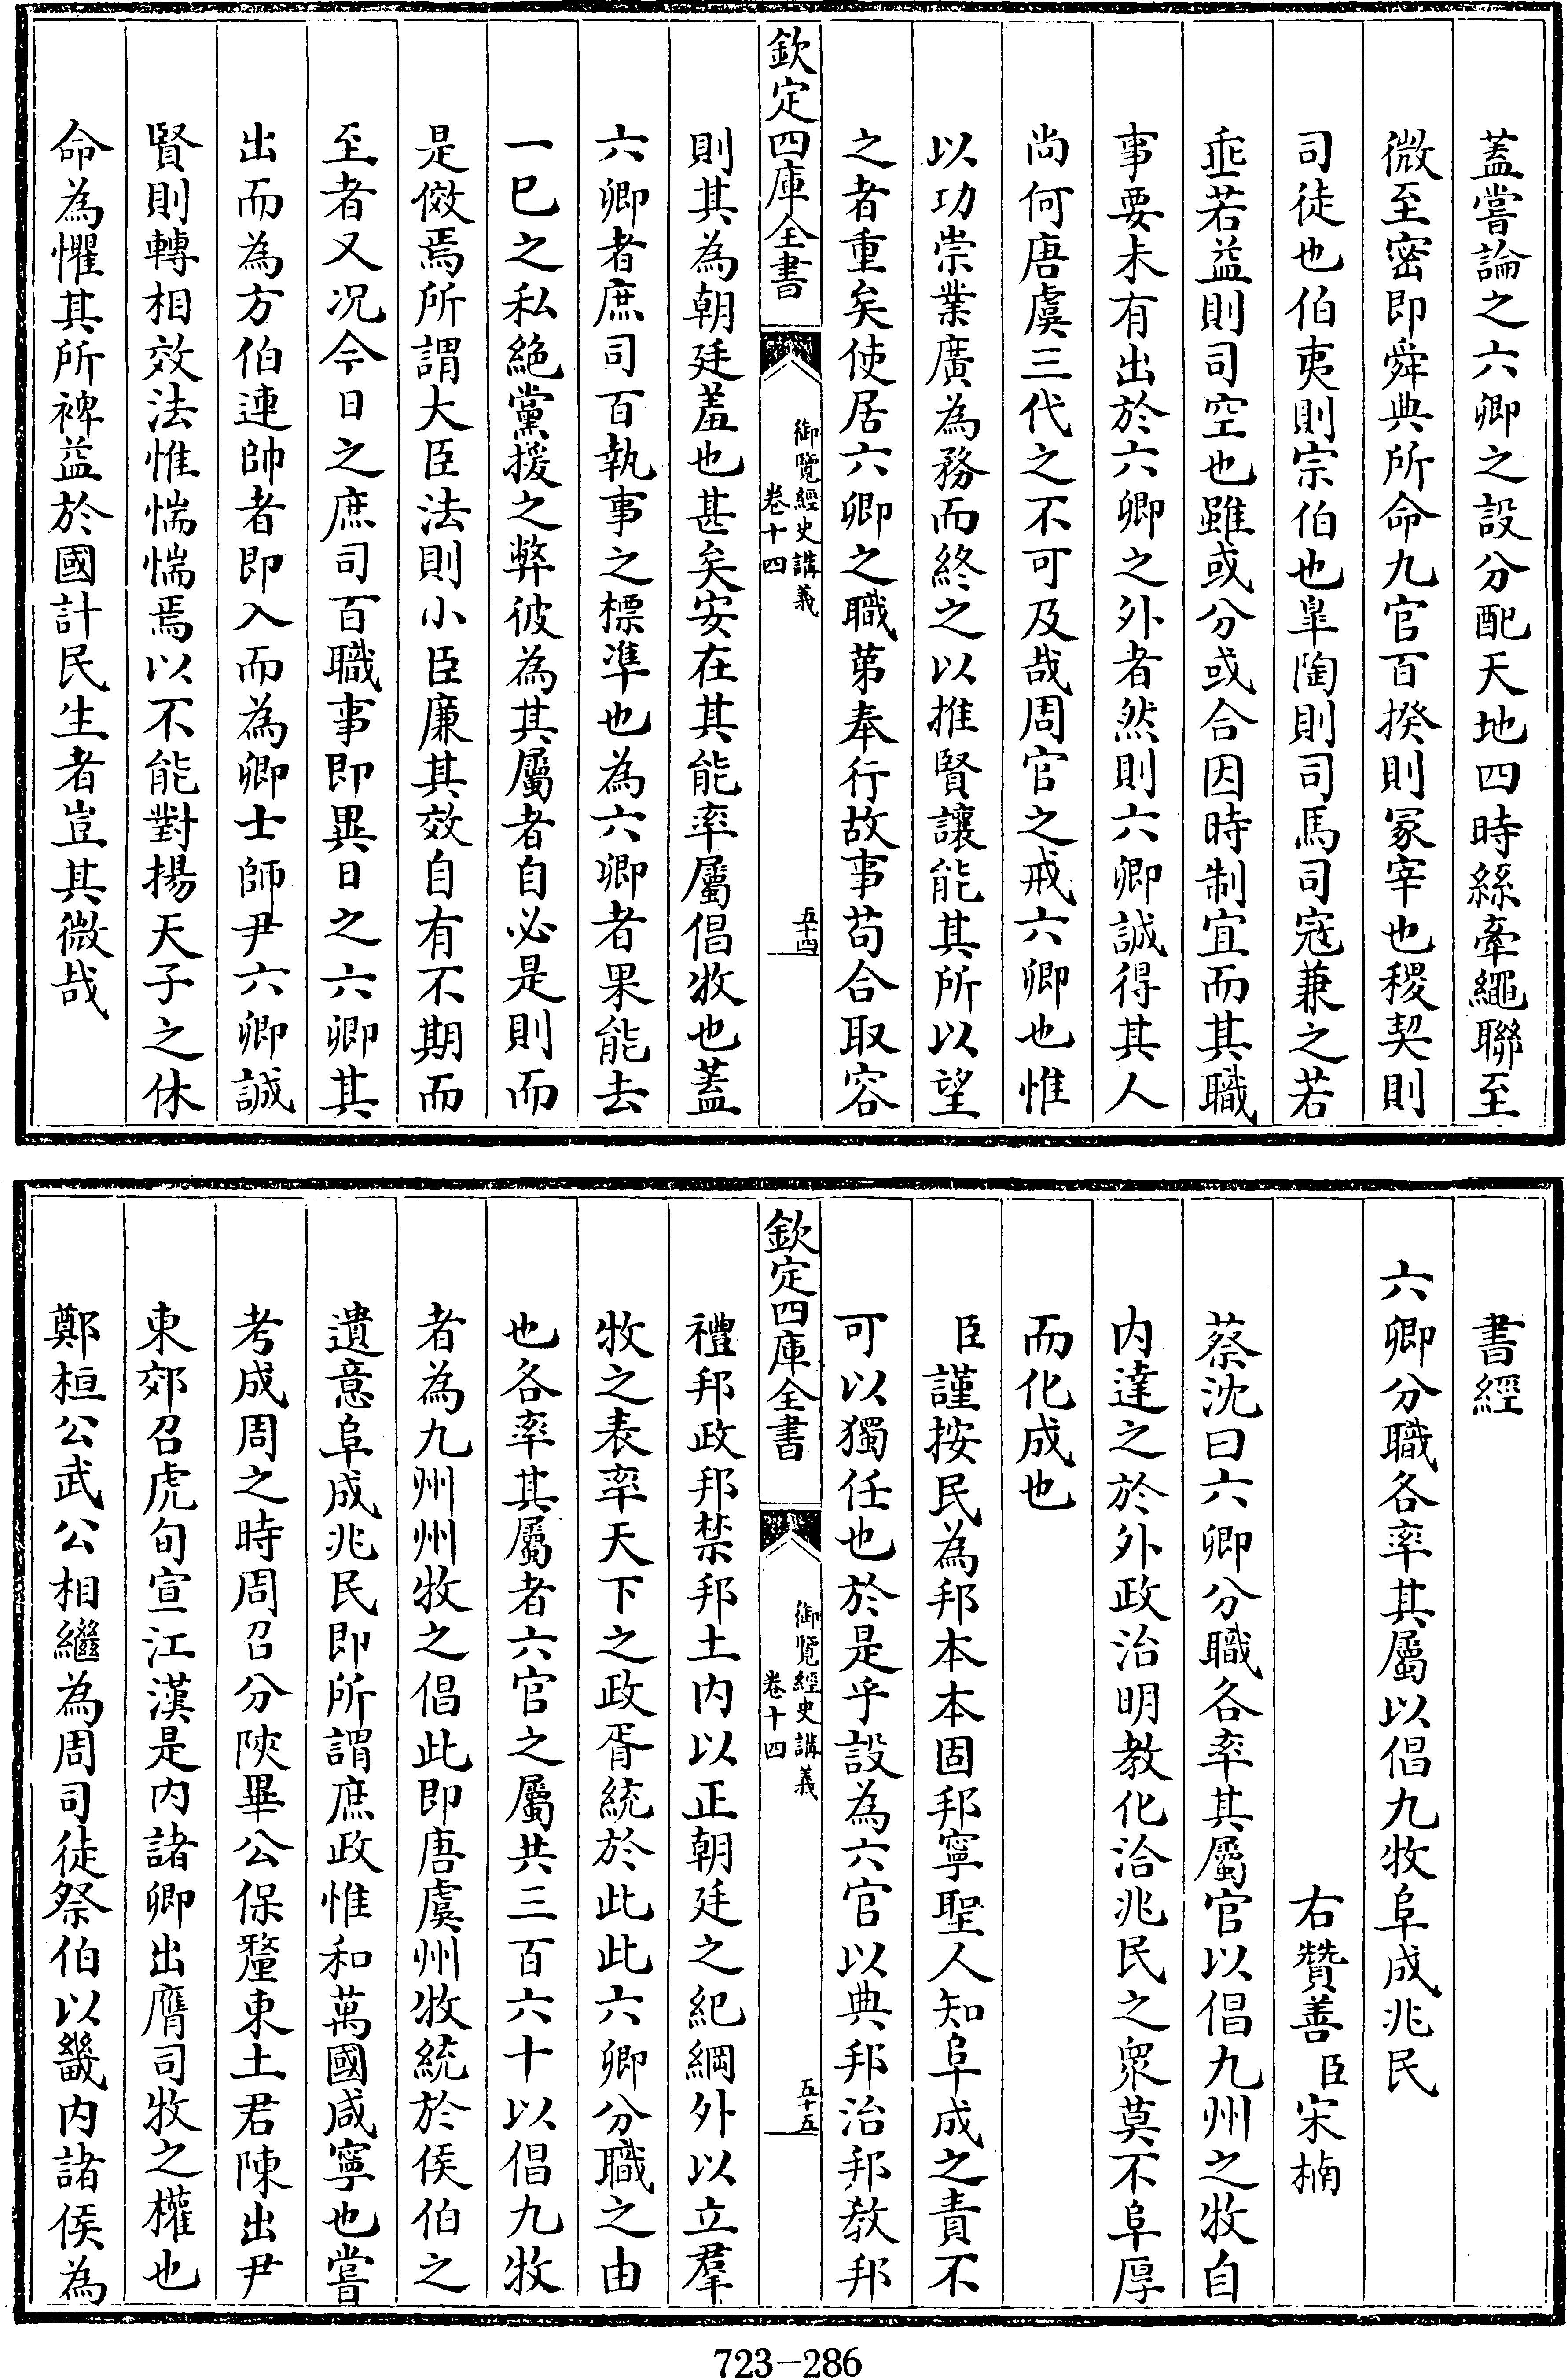 蓋嘗論之六卿之設分配天地四時絲牽繩聯至
微至密即舜典所命九官百揆則冢宰也稷契則
司徒也伯夷則宗伯也臯陶則司馬司寇兼之若
垂若益則司空也雖或分或合因時制宜而其職
事要未有出於六卿之外者然則六卿誠得其人
尚何唐虞三代之不可及哉周官之戒六卿也惟
以功崇業廣為務而終之以推賢讓能其所以望
之者重矣使居六卿之職第奉行故事苟合取容
欽定四庫全書
御覽經史講義
卷十四
五十四
則其為朝廷羞也甚矣安在其能率屬倡牧也蓋
六卿者庶司百執事之標準也為六卿者果能去
一已之私絶黨援之弊彼為其屬者自必是則而
是傚焉所謂大臣法則小臣廉其效自有不期而
至者又况今日之庶司百職事即異日之六卿其
出而為方伯連帥者即入而為卿士師尹六卿誠
賢則轉相效法惟惴惴焉以不能對揚天子之休
命為懼其所裨益於國計民生者豈其微哉
書經
六卿分職各率其屬以倡九牧阜成兆民
右贊善臣宋楠
蔡沈曰六卿分職各率其屬官以倡九州之牧自
内達之於外政治明教化洽兆民之衆莫不阜厚
而化成也
臣謹按民為邦本本固邦寧聖人知阜成之責不
可以獨任也於是乎設為六官以典邦治邦教邦
欽定四庫全書
御覽經史講義
卷十四
五十五
禮邦政邦禁邦土内以正朝廷之紀綱外以立羣
牧之表率天下之政胥統於此此六卿分職之由
也各率其屬者六官之屬共三百六十以倡九牧
者為九州州牧之倡此即唐虞州牧統於侯伯之
遺意阜成兆民即所謂庶政惟和萬國咸寧也嘗
考成周之時周召分陜畢公保釐東土君陳出尹
東郊召虎旬宣江漢是内諸卿出膺司牧之權也
鄭桓公武公相繼為周司徒祭伯以畿内諸侯為
723-286